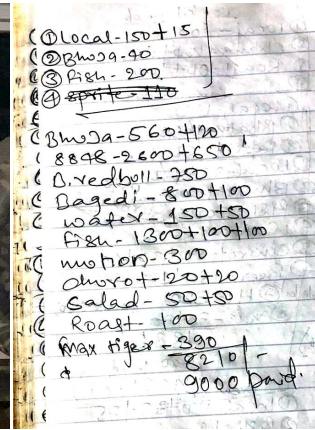 ① Local-150+15
② Bhoja-40
③ Fish-200
④ sprite-110
Bhoja-560+120
8848-2600+650
D.redbull-750
Bagedi-800+100
water-150+50
fish-1300+100+100
mutton-300
churot-120+20
Salad-50+50
Roast-100
Max tiger-390
8210/-
9000 paid.